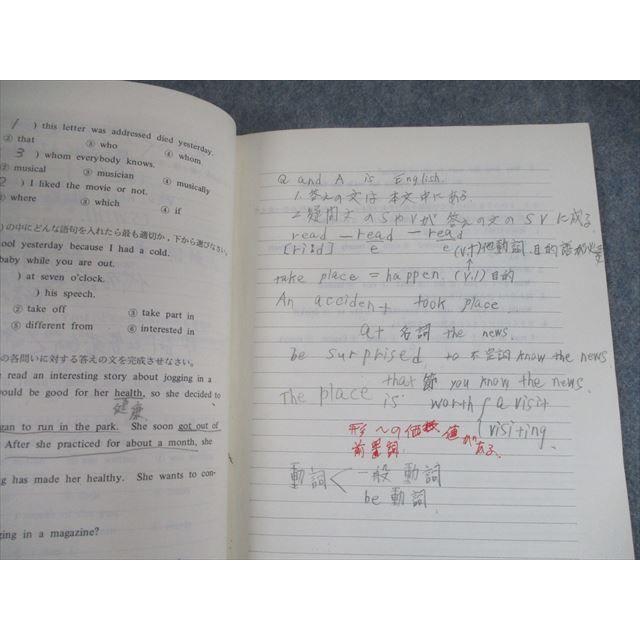 1 ) this letter was addressed died yesterday.
② that ③ who ④ whom
3 ) whom everybody knows.
② musical ③ musician ④ musically
2 ) I liked the movie or not.
② where ③ which ④ if
)の中にどんな語句を入れたら最も適切か,下から選びなさい。
ool yesterday because I had a cold.
baby while you are out.
) at seven o'clock.
) his speech.
② take off ③ take part in
⑤ different from ⑥ interested in
の各問いに対する答えの文を完成させなさい。
e read an interesting story about jogging in a
ould be good for her health, so she decided to
健康
gan to run in the park. She soon got out of
After she practiced for about a month, she
ng has made her healthy. She wants to con-
ging in a magazine?
Q and A is English.
1. 答えの文は 本文中にある.
2. 疑問文のSやVが答えの文のSVに成る.
read — read — read
[ri:d] e e (v.t)他動詞.目的語が必要
take place = happen. (v.i) 目的
An accident took place
at 名詞 the news.
be surprised to 不定詞 know the news
that 節 you know the news.
The place is worth a visit
visiting
形 〜の価値がある.
前置詞
動詞 一般動詞
be 動詞